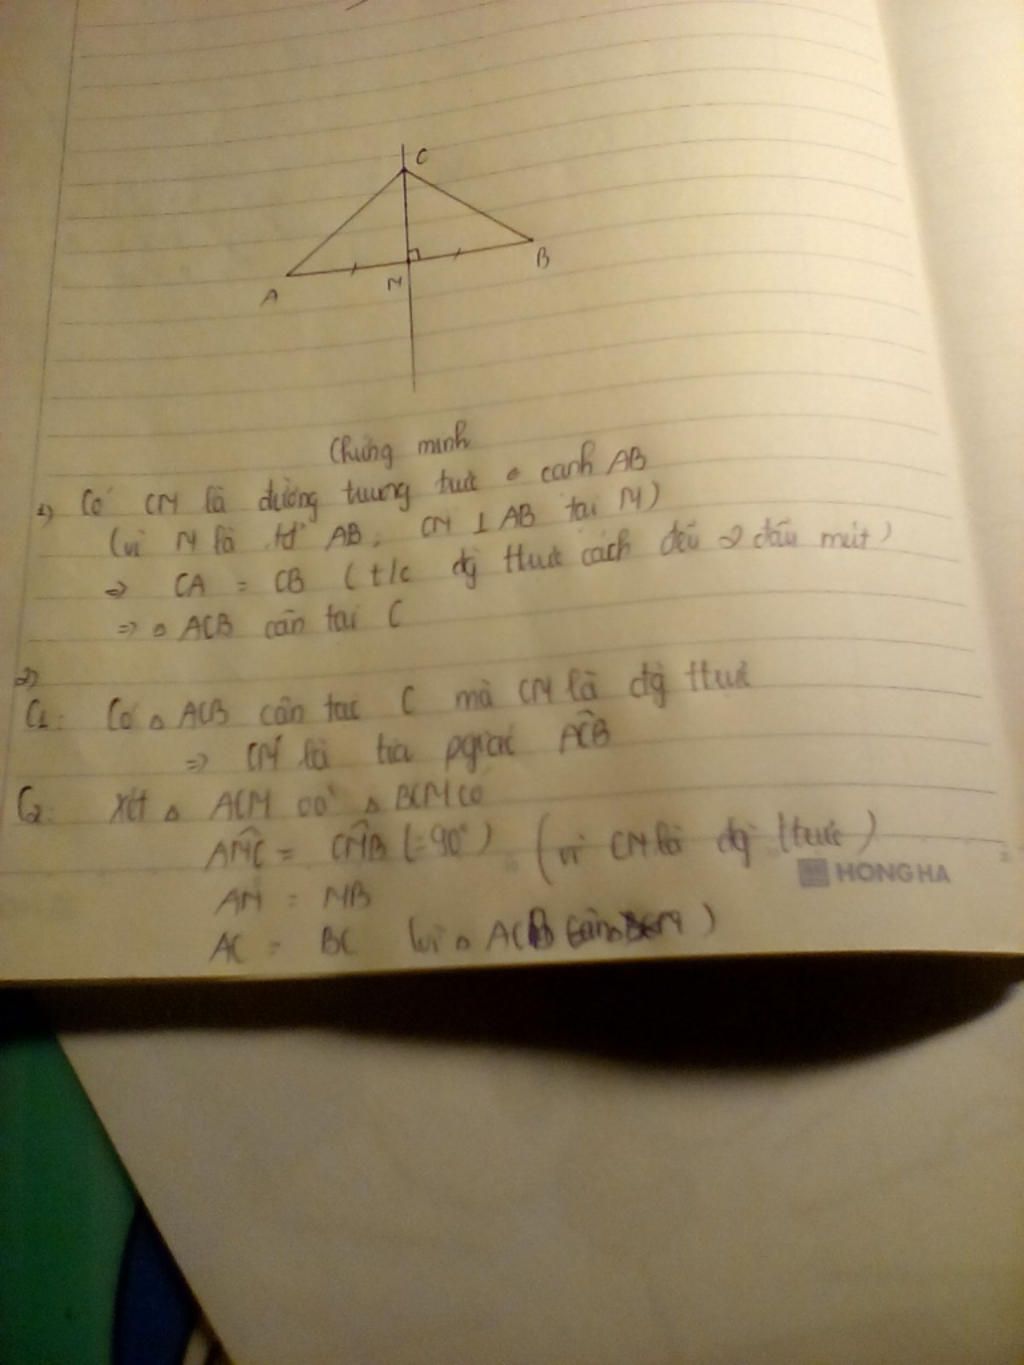 C
A
M
B
Chứng minh
1) Có CM là đường trung trực cạnh AB
(vì M là tđ AB, CM ⊥ AB tại M)
=> CA = CB (t/c đg ttrực cách đều 2 đầu mút)
=> △ ACB cân tại C
2)
C1: Có △ ACB cân tại C mà CM là đg ttrực
=> CM là tia pgiác ACB
C2: Xét △ ACM có △ BCM có
AMC = CMB (=90°) (vì CM là đg ttrực)
HONG HA
AM = MB
AC = BC (vì △ ACB cân)